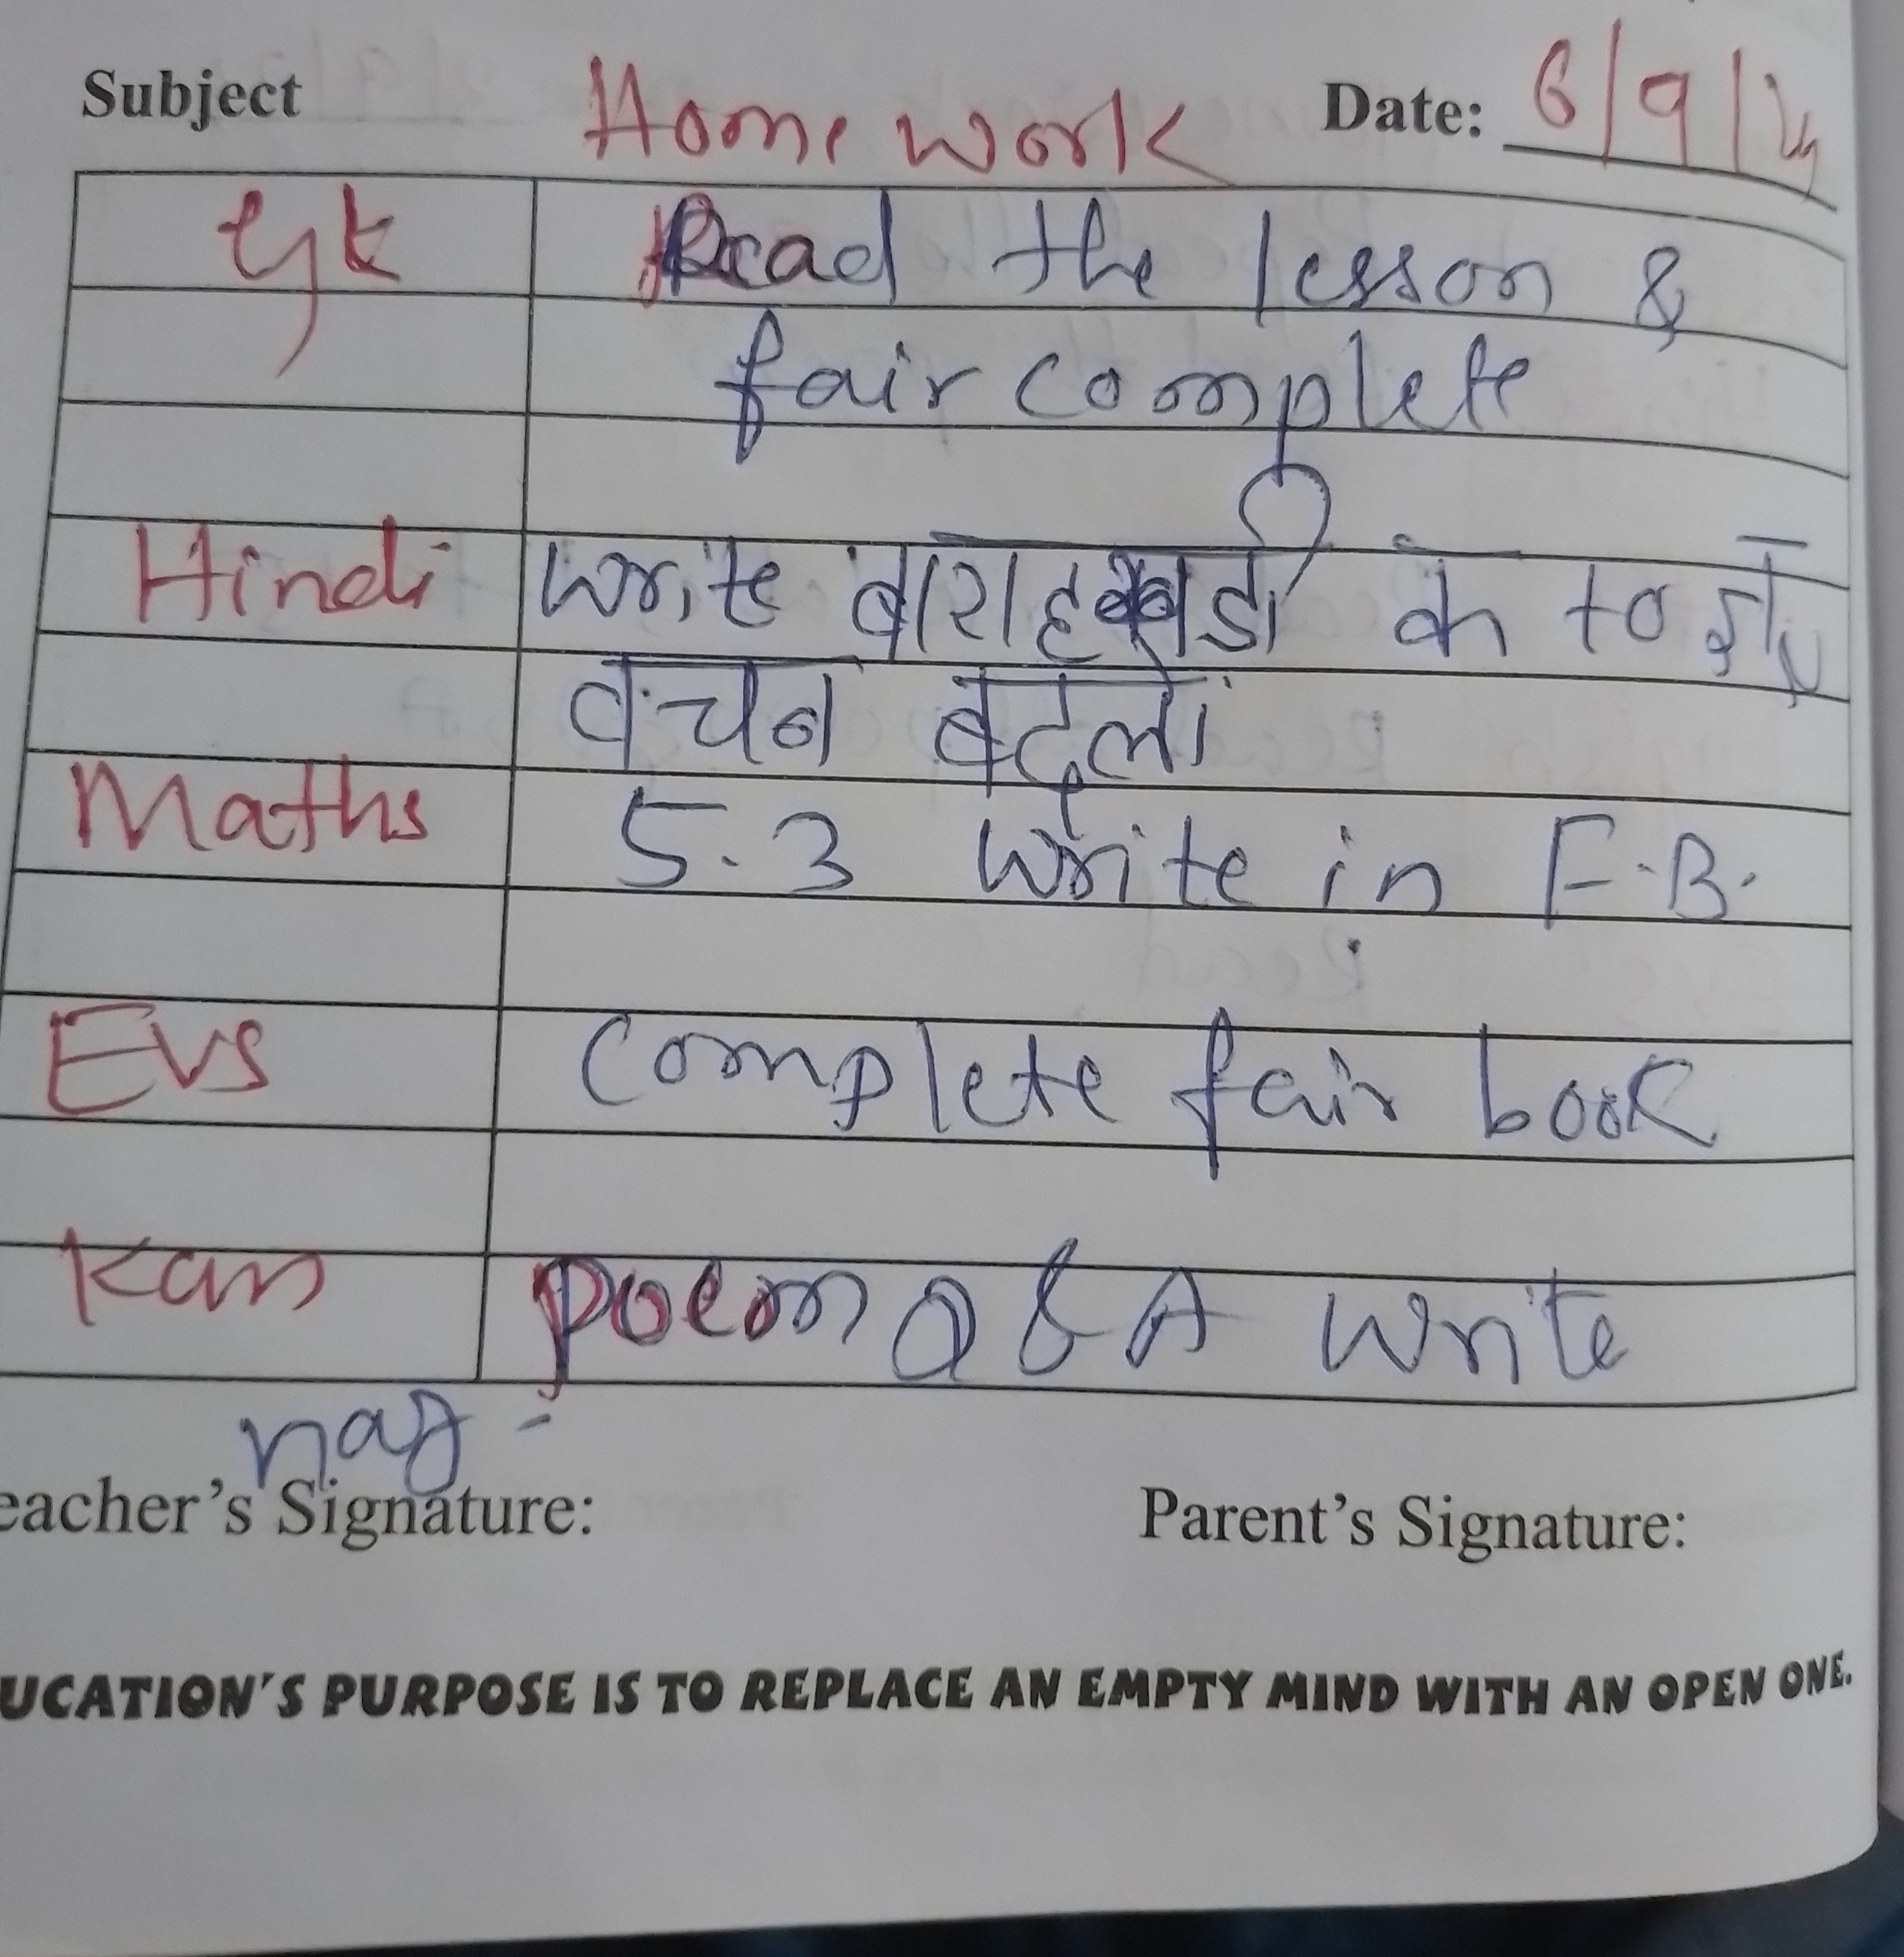 Subject Home work Date: 6/9/24
Gk Read the lesson &
fair complete
Hindi Write बाराहखडी क to ज्ञ
वचन बदलो
Maths 5.3 Write in F.B.
Evs Complete fair book
Kan poem Q & A write
eacher's Signature: Parent's Signature:
UCATION'S PURPOSE IS TO REPLACE AN EMPTY MIND WITH AN OPEN ONE.